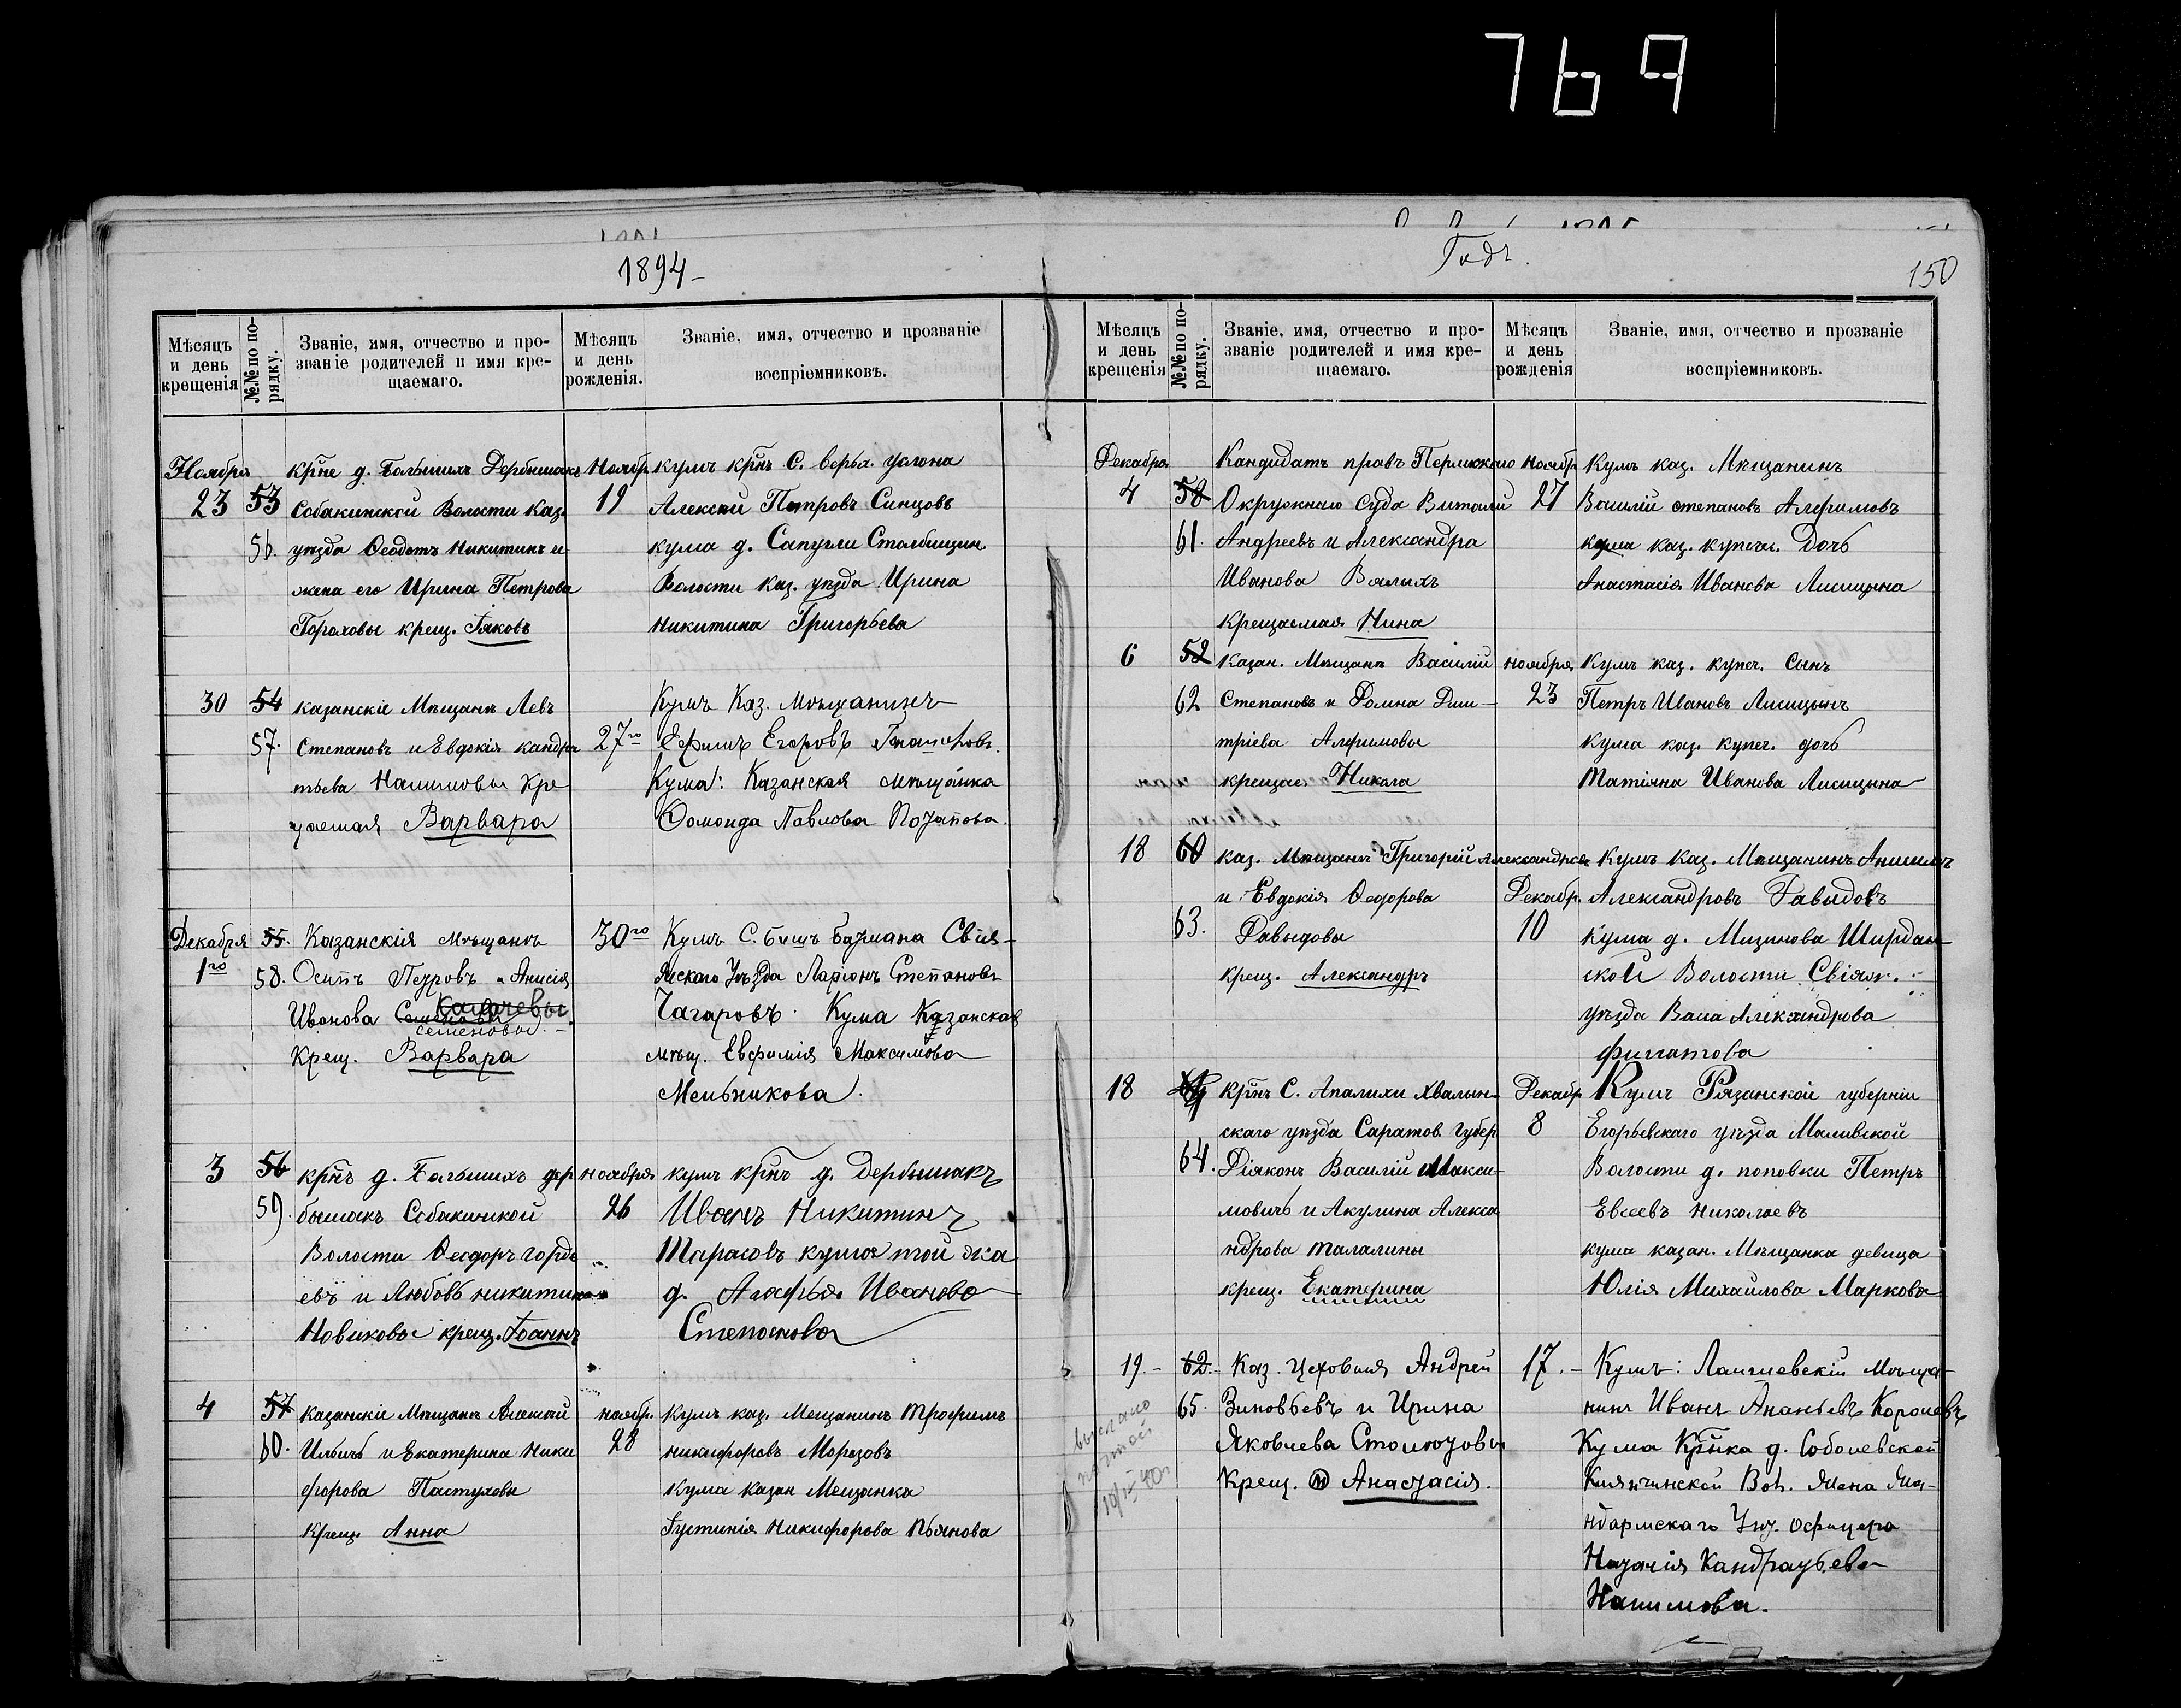 769
1894
Годъ.
150
Мѣсяцъ и день крещенія
№№ по порядку.
Званіе, имя, отчество и про-
званіе родителей и имя кре-
щаемаго.
Мѣсяцъ и день рожденія.
Званіе, имя, отчество и прозваніе
воспріемниковъ.
Ноября
23
53
56.
крне д. Большихъ Дербышакъ
Собакинской Волости Каз.
уѣзда Ѳеодотъ Никитинъ и
жена его Ирина Петрова
Гороховы крещ. Іяковъ
Ноябр
19
кумъ крнъ С. верьх. услона
Алексѣй Петровъ Синцовъ
кума д. Сапугли Столбищин.
Волости Каз. уѣзда Ирина
Никитина Григорьева
30
54
57.
казанскіе Мѣщанъ Левъ
Степановъ и Евдокія кандра
тьева Напимовы Кре
щаемая Варвара
27го
Кумъ Каз. мѣщанинъ
Ефимъ Егоровъ
Кума: Казанская мѣщанка
Домоида Павлова Потапова.
Декабря
1го
55.
58.
Казанскія мѣщанъ
Осипъ Петровъ и Анисія
Иванова
Семеновы
Крещ. Варвара
30го
Кумъ С. Бишъ батмана Свія-
жскаго Уѣзда Ларіонъ Степановъ
Чагаровъ. Кума Казанская
мѣщ. Евфимія Максимова
Мельникова.
3
56
59.
крнъ д. Большихъ дер
бышакъ Собакинской
Волости Ѳеодоръ горде
евъ и Любовь никитина
Новиковы крещ. Іоаннъ
ноября
26
кумъ крнъ д. Дербышакъ
Иванъ Никитинъ
Тарасовъ кума той жа
д. Агафья Иванова
Степанова
4
57
60.
казанскіе Мѣщанъ Алексѣй
Ильичъ и Екатерина Ники
форова Пастуховы
Крещ. Анна
ноябр.
28
кумъ каз. Мещанинъ Трофимъ
никифоровъ Морозовъ
кума казан Мещанка
Іустинія Никифорова Пьянова
Мѣсяцъ и день крещенія
№№ по порядку.
Званіе, имя, отчество и про-
званіе родителей и имя кре-
щаемаго.
Мѣсяцъ и день рожденія
Званіе, имя, отчество и прозваніе
воспріемниковъ.
Декабря
4
58
61.
Кандидатъ правъ Пермскаго
Окружнаго Суда Виталій
Андреевъ и Александра
Иванова Вялыхъ
крещаемая Нина
Ноябр
27
Кумъ каз. Мѣщанинъ
Василій степановъ Алфимовъ
кума каз. купеч. Дочь
Анастасія Иванова Лисицына
6
62
Казан. Мѣщанъ Василій
Степановъ и Домна Дми-
тріева Алфимовы
крещае. Никола
ноября
23
Кумъ каз. купеч. Сынъ
Петръ Ивановъ Лисицынъ
кума каз. купеч. дочь
Татіяна Иванова Лисицына
18
60
63.
каз. Мѣщанъ Григорій Александров
и Евдокія Ѳеодорова
Давыдовы
крещ. Александръ
Декабр.
10
Кумъ Каз. Мѣщанинъ Анисимъ
Александровъ Давыдовъ
кума д. Мизинова Ширдан-
ской Волости Свіяж.
уѣзда Васа Александрова
Филатова
18
64.
Крнъ С. Апалихи Хвалын-
скаго уѣзда Саратов. Губер
Діяконъ Василій Макси-
мовичъ и Акулина Алекса
ндрова Талалины
крещ. Екатерина
Декабр
8
Кумъ Рязанской губерніи
Егорьевскаго уѣзда Маливской
Волости д. поповки Петръ
Евсеевъ Николаевъ
кума казан. Мѣщанка девица
Юлія Михайлова Маркова
19.-
62.
65.
Каз. Цеховыя Андрей
Зиновьевъ и Ирина
Яковлева Столюзовы
Крещ. Анастасія.
17.-
Кумъ: Лаишевскій Мѣща-
нинъ Иванъ Ананьевъ Королевъ
Кума Крнка д. Соболевской
Вол. Жена Жа-
ндармскаго Унт. офицера
Наталія Кандратьева
Напимова.
выслано
почтой